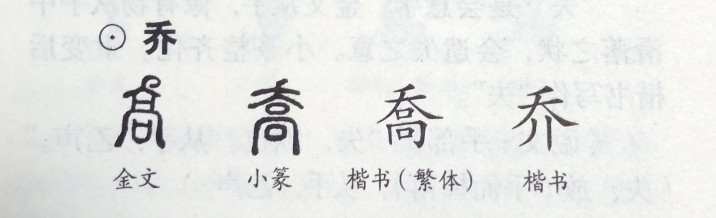 ⊙ 乔
喬 喬 喬 乔
金文 小篆 楷书（繁体） 楷书